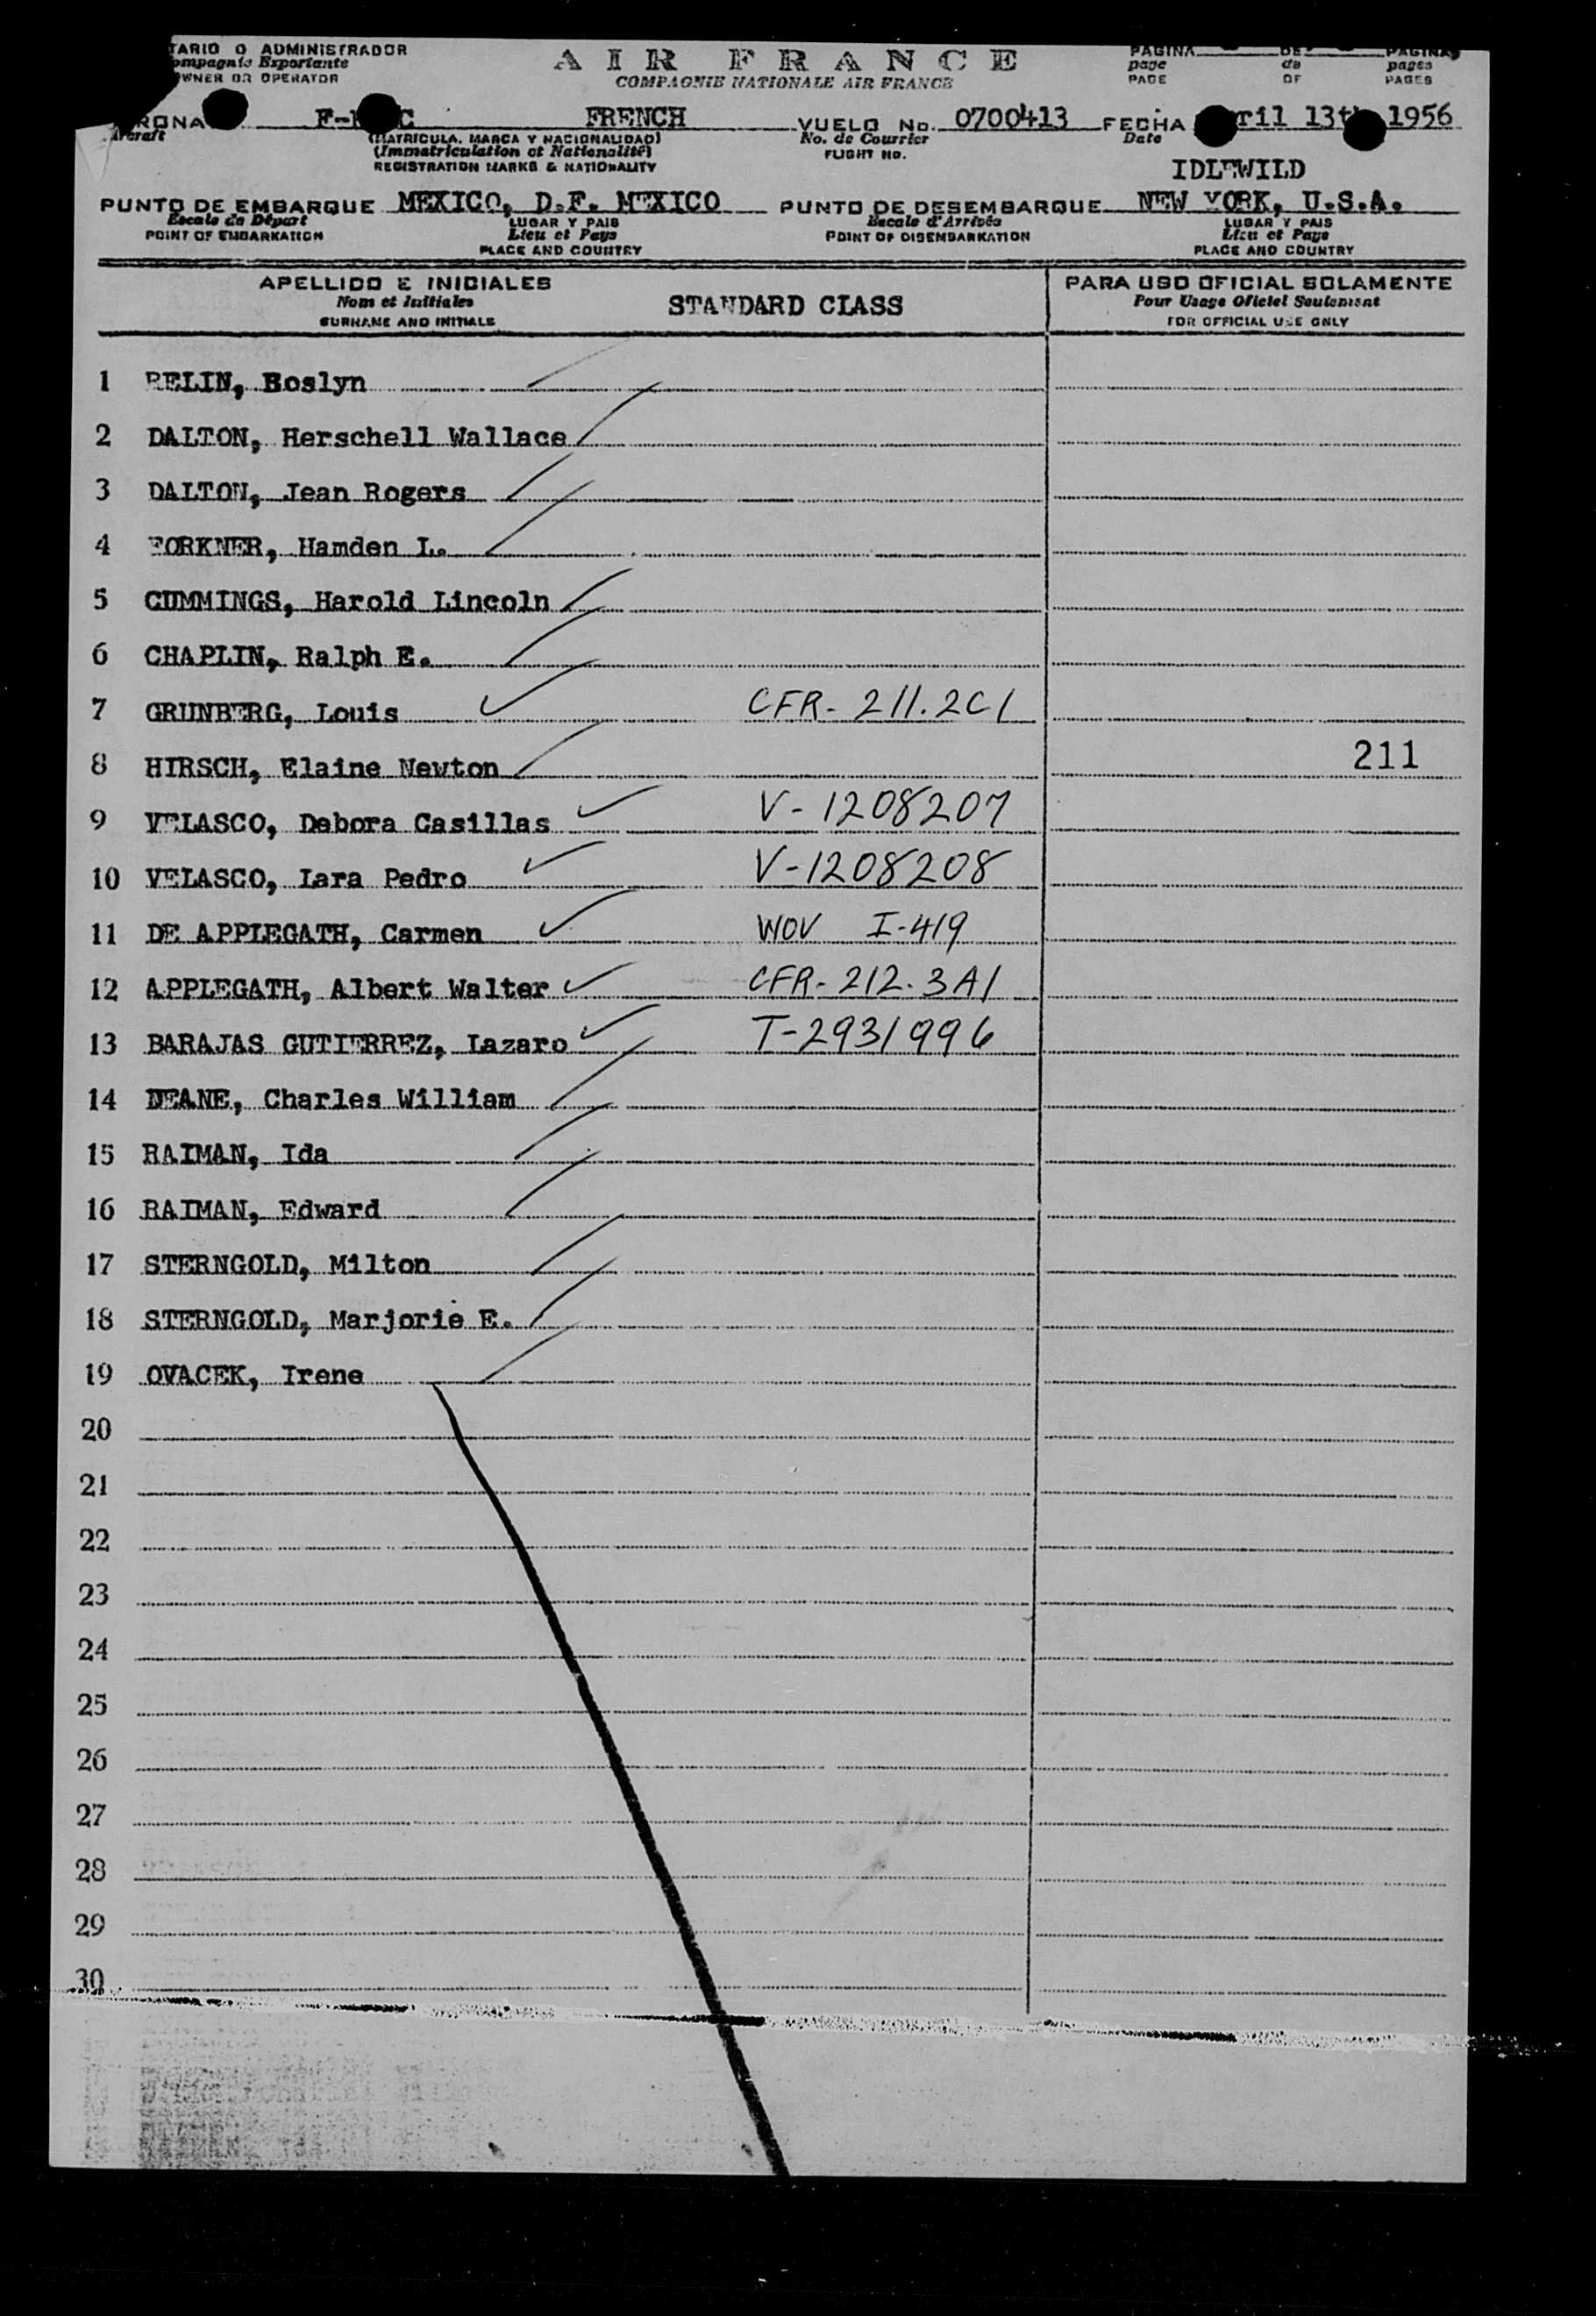 TARIO O ADMINISTRADOR
ompagnie Exportante
OWNER OR OPERATOR
AIR FRANCE
COMPAGNIE NATIONALE AIR FRANCE
PAGINA DE PAGINAS
page de pages
PAGE OF PAGES
FRENCH VUELO No. 0700413 FECHA ril 13th 1956
Aircraft (MATRICULA, MARCA Y NACIONALIDAD) No. de Courrier Date
(Immatriculation et Nationalité) FLIGHT No.
REGISTRATION MARKS & NATIONALITY
IDLEWILD
PUNTO DE EMBARQUE MEXICO, D.F. MEXICO PUNTO DE DESEMBARQUE NEW YORK, U.S.A.
Escale de Départ LUGAR Y PAIS Escale d'Arrivée LUGAR Y PAIS
POINT OF EMBARKATION Lieu et Pays POINT OF DISEMBARKATION Lieu et Pays
PLACE AND COUNTRY PLACE AND COUNTRY
APELLIDO E INICIALES
Nom et Initiales
SURNAME AND INITIALS
STANDARD CLASS
PARA USO OFICIAL SOLAMENTE
Pour Usage Oficiel Seulement
FOR OFFICIAL USE ONLY
1 RELIN, Roslyn
2 DALTON, Herschell Wallace
3 DALTON, Jean Rogers
4 FORKNER, Hamden L.
5 CUMMINGS, Harold Lincoln
6 CHAPLIN, Ralph E.
7 GRUNBERG, Louis CFR- 211.2C1
8 HIRSCH, Elaine Newton 211
9 VELASCO, Debora Casillas V-1208207
10 VELASCO, Lara Pedro V-1208208
11 DE APPLEGATH, Carmen WOV I-419
12 APPLEGATH, Albert Walter CFR-212.3A1
13 BARAJAS GUTIERREZ, Lazaro T-2931996
14 DEANE, Charles William
15 RAIMAN, Ida
16 RAIMAN, Edward
17 STERNGOLD, Milton
18 STERNGOLD, Marjorie E.
19 OVACEK, Irene
20
21
22
23
24
25
26
27
28
29
30